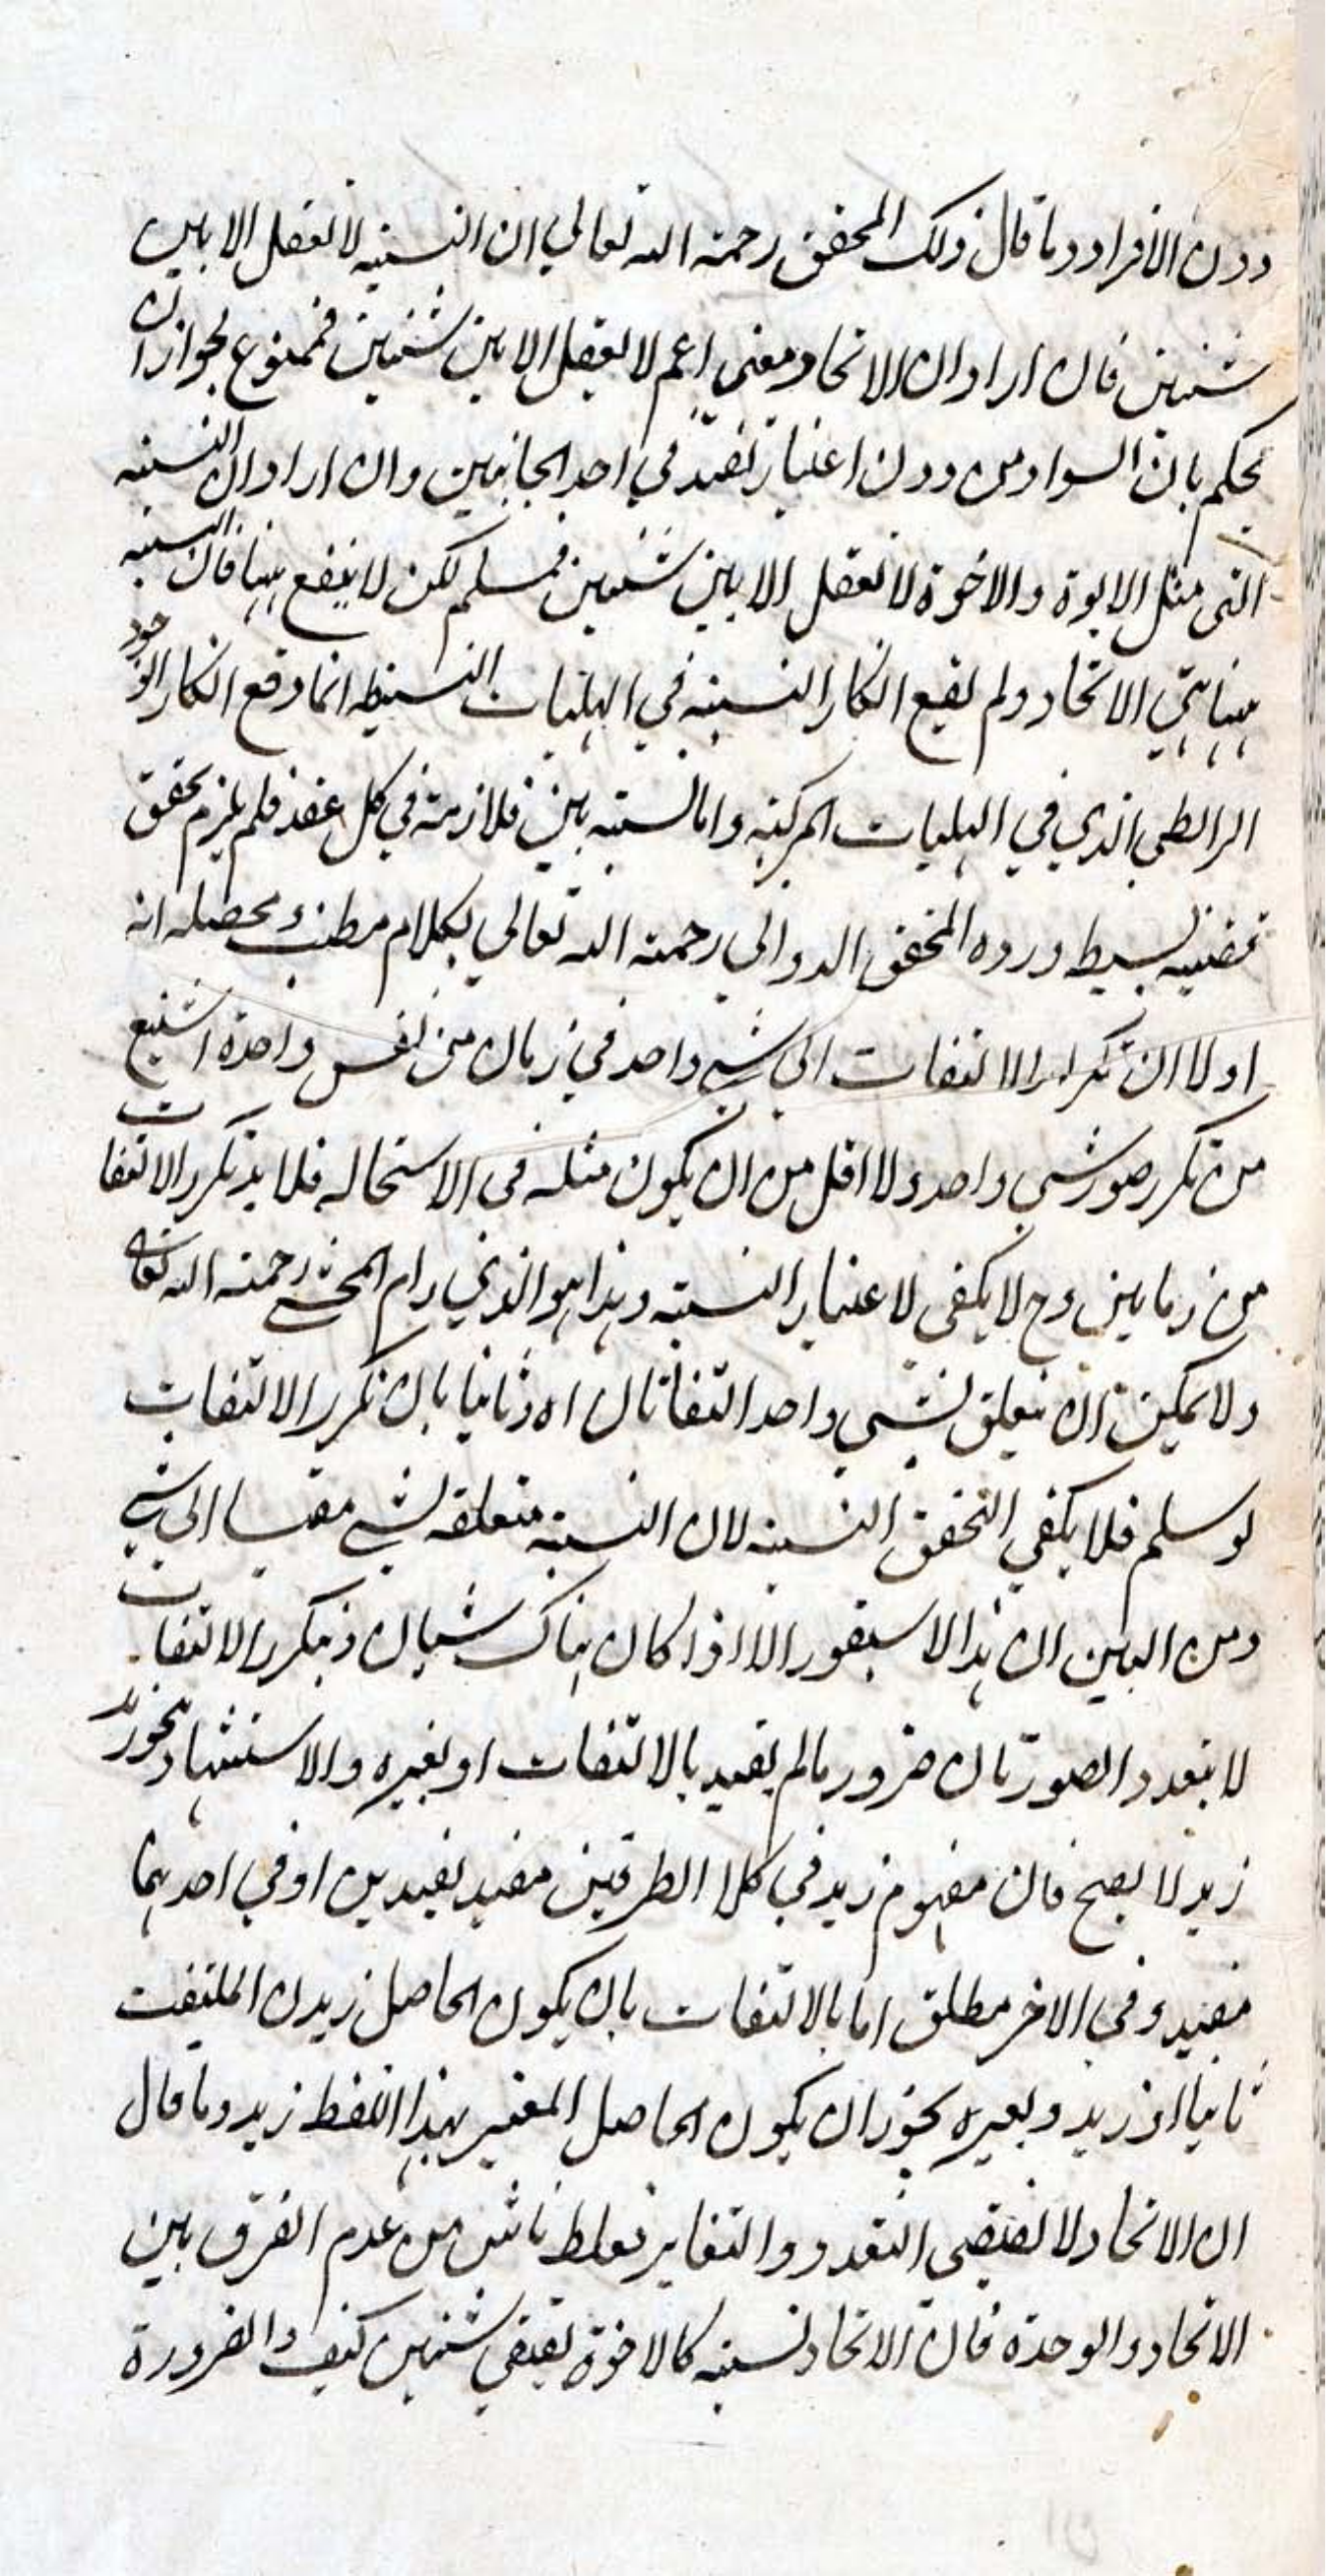 دون الافراد وما قال ذلك المحقق رحمة الله تعالي ان النسبة لا تعقل الا بين
شيئين فان اراد ان الاتحاد معنى اعم لا يعقل الا بين شيئين فممنوع لجواز ان
يحكم بان السواد من دون اعتبار تقيد في احد الجانبين وان اراد ان النسبة
التي مثل الابوة والاخوة لا تعقل الا بين شيئين فمسلم لكن لا ينفع ههنا فان النسبة
ههنا هي الاتحاد ولم يقع انكار النسبة في الهليات البسيطة انما وقع انكار الوجود
الرابطي الذي في الهليات المركبة واما النسبة بين بين فلازمة في كل عقد فلم يلزم تحقق
قضية بسيط ورده المحقق الدواني رحمة الله تعالي بكلام مطنب ومحصله انه
اولا ان تكرار الالتفات الي شي واحد في زمان من نفس واحدة اشنع
من تكرر صور شي واحد ولا اقل من ان يكون مثله في الاستحالة فلا بد تكرر الالتفات
من زمانين وح لا يكفي لاعتبار النسبة وهذا هو الذي رام المحشي رحمة الله تعالى
ولا يمكن ان يتعلق بشي واحد التفاتان اه وثانيا بان تكرر الالتفات
لو سلم فلا يكفي التحقق النسبة لان النسبة متعلقة بشي مقيسا الي شي
ومن البين ان هذا لا يتصور الا اذا كان هناك شيئان وبتكرر الالتفات
لا يتعدد الصورتان ضرور ما لم يقيد بالالتفات او بغيره والاستشهاد بنحو زيد
زيد لا يصح فان مفهوم زيد في كلا الطرفين مقيد بقيدين او في احدهما
مقيد وفي الاخر مطلق اما بالالتفات بان يكون الحاصل زيدن الملتفت
ثانيا اذ زيد وبغيره نحو ان يكون الحاصل المعبر بهذا اللفظ زيد وما قال
ان الاتحاد لا يقتضي التعدد والتغاير فغلط ناش من عدم الفرق بين
الاتحاد والوحدة فان الاتحاد نسبة كالاخوة يقتضي شيئين كيف والضرورة